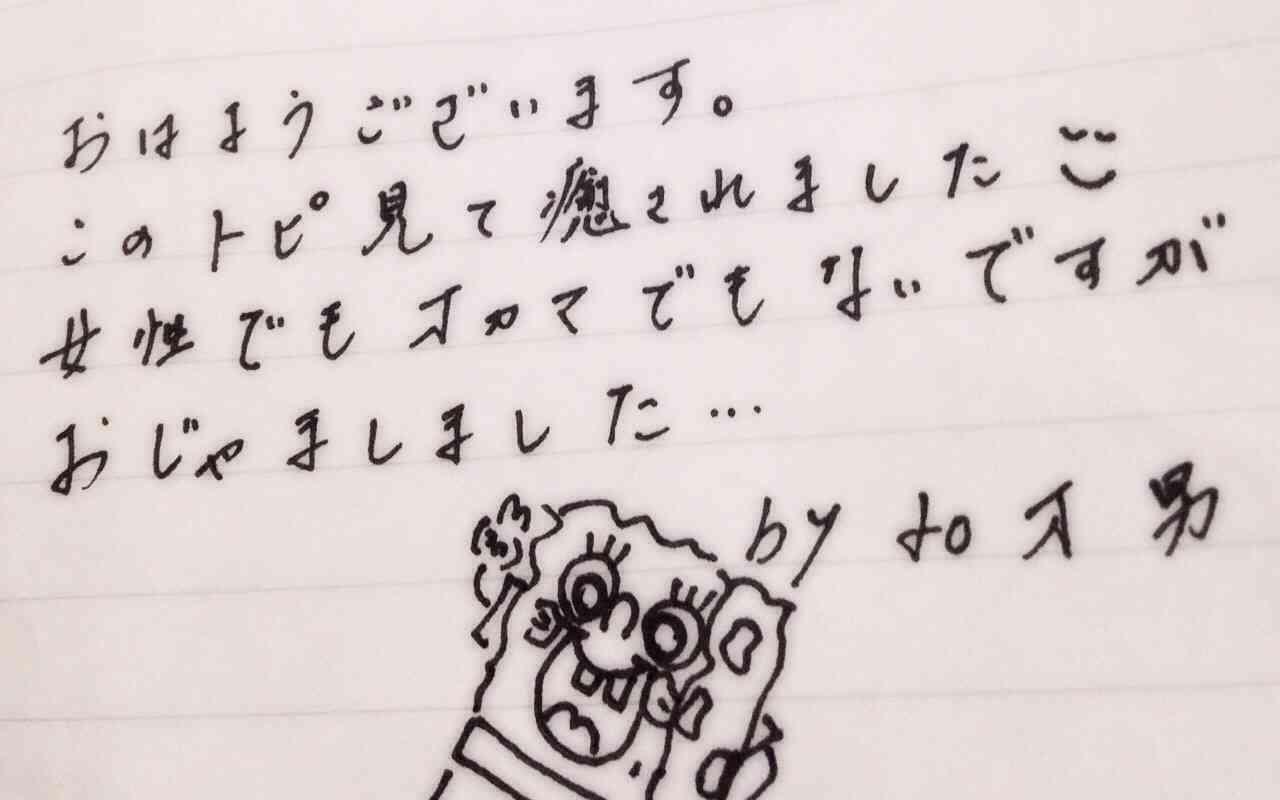 おはようございます。
このトピ見て癒されました
女性でもオカマでもないですが
おじゃましました…
by toオ男